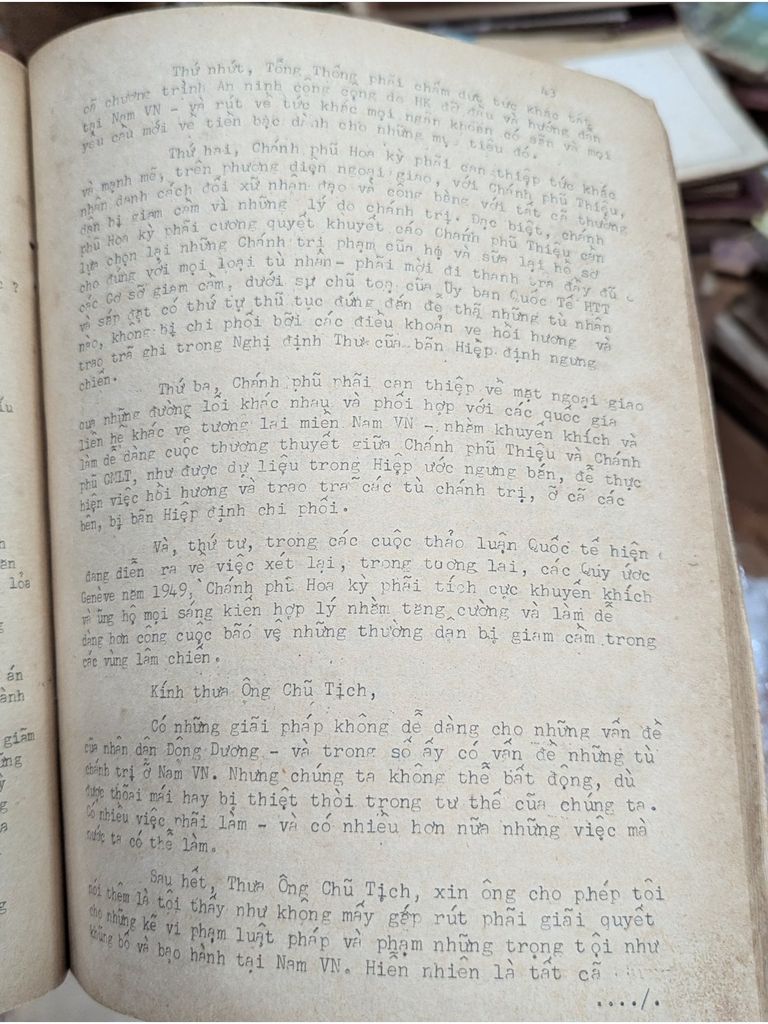 43
Thứ nhứt, Tổng Thống phãi chấm dứt tức khắc tất
cã chương trình An ninh công cọng do HK đỡ đầu và hướng dẫn
tại Nam VN - và rút về tức khắc mọi ngân khoãn có sẵn và mọi
yêu cầu mới về tiền bạc dành cho những mục tiêu đó.
Thứ hai, Chánh phũ Hoa kỳ phãi can thiệp tức khắc
và mạnh mẽ, trên phương diện ngoại giao, với Chánh phũ Thiệu,
nhân danh cách đối xữ nhân đạo và công bằng với tất cã thường
dân bị giam cầm vì những lý do chánh trị. Đặc biệt, chánh
phũ Hoa kỳ phãi cương quyết khuyết cáo Chánh phũ Thiệu cần
lựa chọn lại những Chánh trị phạm cũa họ và sữa lại hồ sơ
cho đúng với mọi loại tù nhân- phãi mời đi thanh tra đầy đũ
các Cơ sỡ giam cầm, dưới sự chũ tọa cũa Ũy ban Quốc Tế HTT
và sắp đặt có thứ tự thũ tục đứng đắn để thã những tù nhân
nào, không bị chi phối bỡi các điều khoãn về hồi hương và
trao trã ghi trong Nghị định Thư cũa bãn Hiệp định ngưng
chiến.
Thứ ba, Chánh phũ phãi can thiệp về mặt ngoại giao
qua những đường lối khác nhau và phối hợp với các quốc gia
liên hệ khác về tương lai miền Nam VN - nhằm khuyến khích và
làm dễ dàng cuộc thương thuyết giữa Chánh phũ Thiệu và Chánh
phũ CMLT, như được dự liệu trong Hiệp ước ngưng bắn, để thực
hiện việc hồi hương và trao trã các tù chánh trị, ỡ cã các
bên, bị bãn Hiệp định chi phối.
Và, thứ tư, trong các cuộc thảo luận Quốc tế hiện
đang diễn ra về việc xét lại, trong tương lai, các Quy ước
Genève năm 1949, Chánh phũ Hoa kỳ phãi tích cực khuyến khích
và ũng hộ mọi sáng kiến hợp lý nhằm tăng cường và làm dễ
dàng hơn công cuộc bão vệ những thường dân bị giam cầm trong
các vùng lâm chiến.
Kính thưa Ông Chũ Tịch,
Có những giãi pháp không dễ dàng cho những vấn đề
cũa nhân dân Đông Dương - và trong số ấy có vấn đề những tù
chánh trị ỡ Nam VN. Nhưng chúng ta không thể bất động, dù
được thõai mái hay bị thiệt thòi trong tư thế cũa chúng ta.
Có nhiều việc phãi làm - và có nhiều hơn nữa những việc mà
nước ta có thể làm.
Sau hết, Thưa Ông Chũ Tịch, xin ông cho phép tôi
nói thêm là tôi thấy như không mấy gấp rút phãi giãi quyết
cho những kẽ vi phạm luật pháp và phạm những trọng tội như
khũng bố và bạo hành tại Nam VN. Hiển nhiên là tất cã
..../.